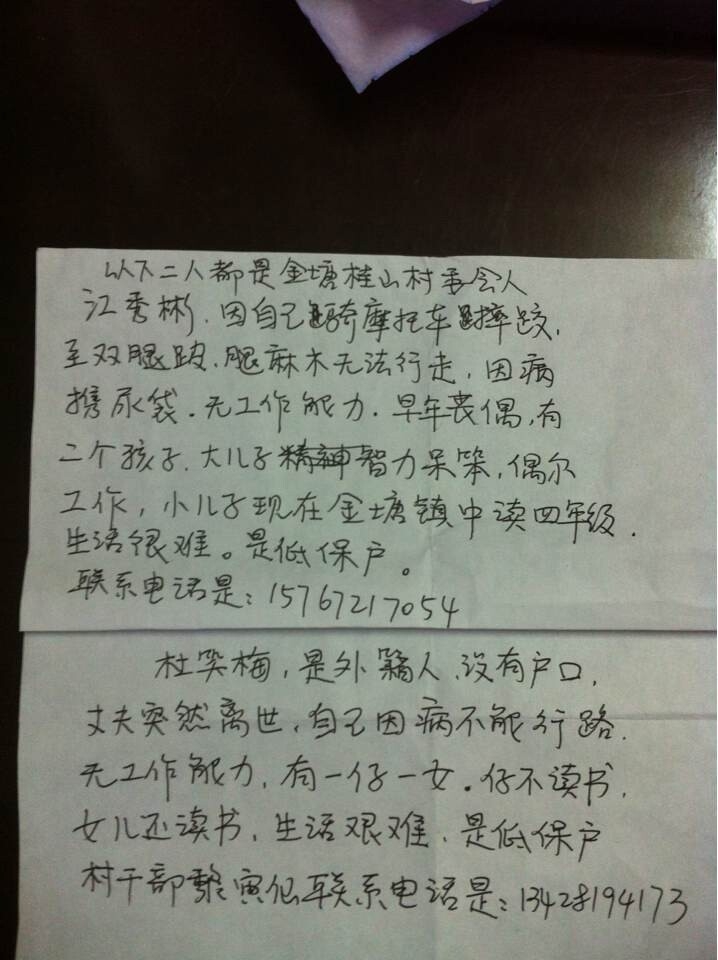 以下二人都是金塘桂山村委会人
江秀彬.因自己骑摩托车摔跤,
至双腿跛、腿麻木无法行走,因病
携尿袋.无工作能力.早年丧偶,有
二个孩子.大儿子智力呆笨,偶尔
工作,小儿子现在金塘镇中读四年级.
生活很难。是低保户。
联系电话是:15767217054
杜笑梅,是外籍人、没有户口,
丈夫突然离世,自己因病不能行路.
无工作能力,有一仔一女。仔不读书,
女儿还读书,生活艰难,是低保户
村干部寅仙联系电话是:13428194173